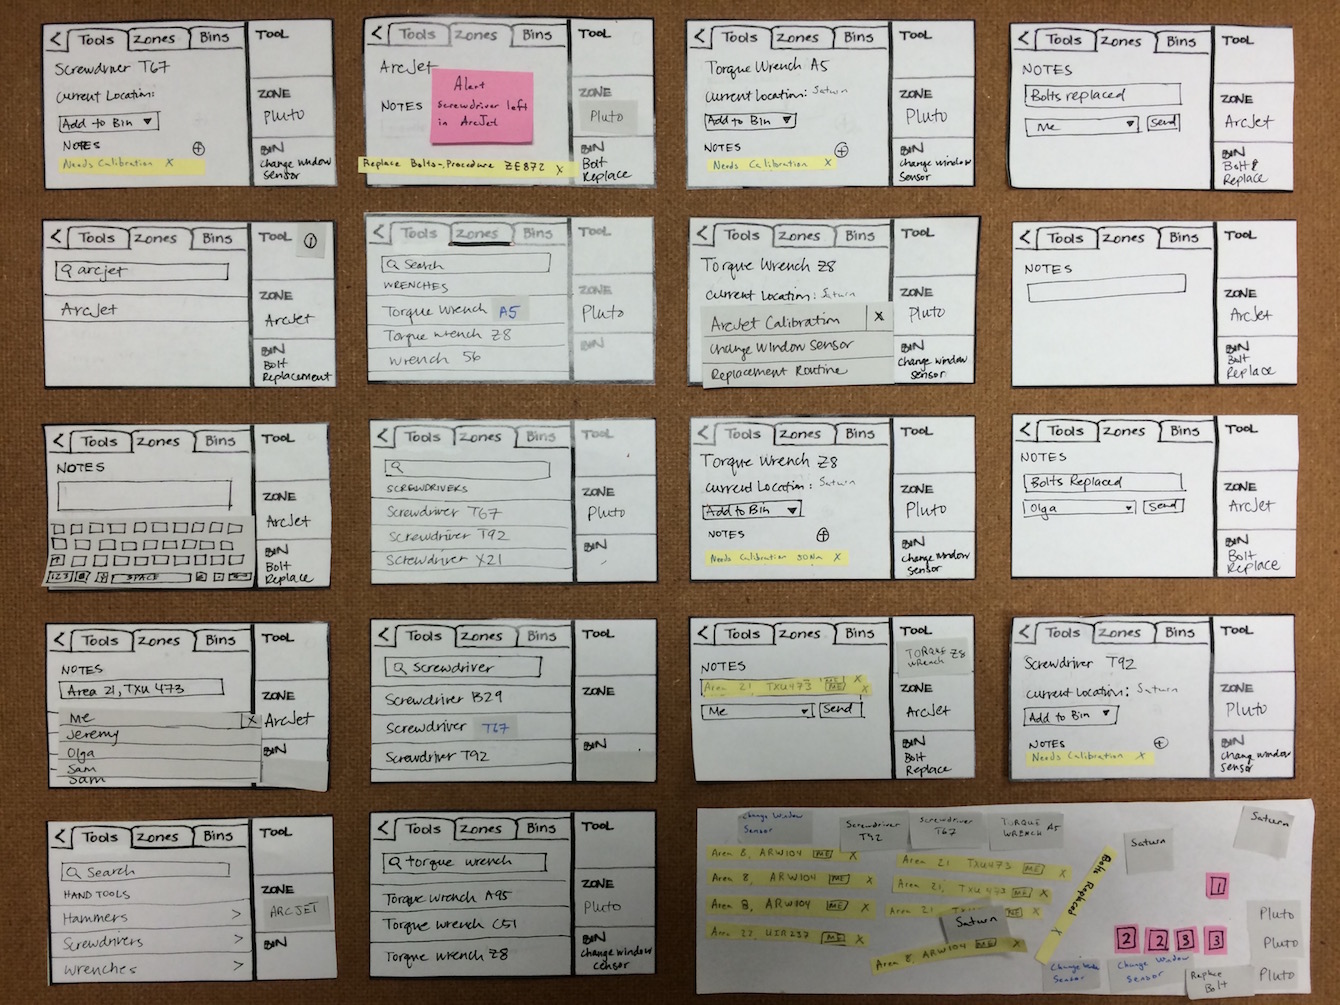 < Tools Zones Bins
Screwdriver T67
Current Location:
Add to Bin ▼
NOTES +
Needs Calibration X
TOOL
ZONE
Pluto
BIN
Change Window
Sensor
< Tools Zones Bins
ArcJet
NOTES
Alert
Screwdriver left
in ArcJet
Replace Bolts - Procedure ZE872 X
TOOL
ZONE
Pluto
BIN
Bolt
Replace
< Tools Zones Bins
Torque Wrench A5
Current Location: Saturn
Add to Bin ▼
NOTES +
Needs Calibration X
TOOL
ZONE
Pluto
BIN
Change Window
Sensor
< Tools Zones Bins
NOTES
Bolts replaced
Me ▼ Send
TOOL
ZONE
ArcJet
BIN
Bolt
Replace
< Tools Zones Bins
arcjet
ArcJet
TOOL 1
ZONE
ArcJet
BIN
Bolt
Replacement
< Tools Zones Bins
Search
WRENCHES
Torque Wrench A5
Torque Wrench Z8
Wrench 56
TOOL
ZONE
Pluto
BIN
< Tools Zones Bins
Torque Wrench Z8
Current Location: Saturn
ArcJet Calibration X
Change Window Sensor
Replacement Routine
TOOL
ZONE
Pluto
BIN
Change Window
Sensor
< Tools Zones Bins
NOTES
TOOL
ZONE
ArcJet
BIN
Bolt
Replace
< Tools Zones Bins
NOTES
123 SPACE
TOOL
ZONE
ArcJet
BIN
Bolt
Replace
< Tools Zones Bins
SCREWDRIVERS
Screwdriver T67
Screwdriver T92
Screwdriver X21
TOOL
ZONE
Pluto
BIN
< Tools Zones Bins
Torque Wrench Z8
Current Location: Saturn
Add to Bin ▼
NOTES +
Needs Calibration 30Nm X
TOOL
ZONE
Pluto
BIN
Change Window
Sensor
< Tools Zones Bins
NOTES
Bolts Replaced
Olga ▼ Send
TOOL
ZONE
ArcJet
BIN
Bolt
Replace
< Tools Zones Bins
NOTES
Area 21, TXU 473
Me X
Jeremy
Olga
Sam
Sam
TOOL
ZONE
ArcJet
BIN
< Tools Zones Bins
Screwdriver
Screwdriver B29
Screwdriver T67
Screwdriver T92
TOOL
ZONE
BIN
< Tools Zones Bins
NOTES
Area 21 TXU473 ME X
Me ▼ Send
TOOL
TORQUE Z8
WRENCH
ZONE
ArcJet
BIN
Bolt
Replace
< Tools Zones Bins
Screwdriver T92
Current Location: Saturn
Add to Bin ▼
NOTES +
Needs Calibration X
TOOL
ZONE
Pluto
BIN
Change Window
Sensor
< Tools Zones Bins
Search
HAND TOOLS
Hammers >
Screwdrivers >
Wrenches >
TOOL
ZONE
ARCJET
BIN
< Tools Zones Bins
torque wrench
Torque Wrench A95
Torque Wrench C51
Torque Wrench Z8
TOOL
ZONE
Pluto
BIN
Change Window
Censor
Change Window
Sensor
Screwdriver
T92
Screwdriver
T67
TORQUE
WRENCH A5
Saturn
Saturn
Area 8, ARW104 ME X
Area 8, ARW104 ME X
Area 8, ARW104 ME X
Area 22, UIR237 ME X
Area 21 TXU473 ME X
Area 21, TXU473 ME X
Area 21 ME X
Saturn
Area 8, ARW104 ME X
Bolts Replaced X
1
2 2 3 3
Pluto
Pluto
Pluto
Change
Sensor
Change Window
Sensor
Replace
Bolt